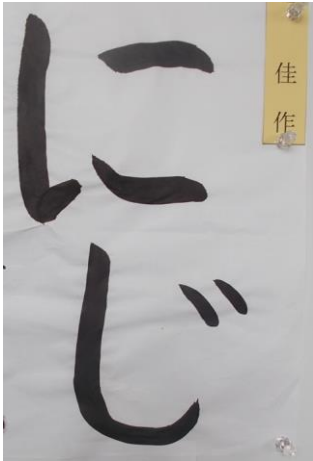 にじ
佳作